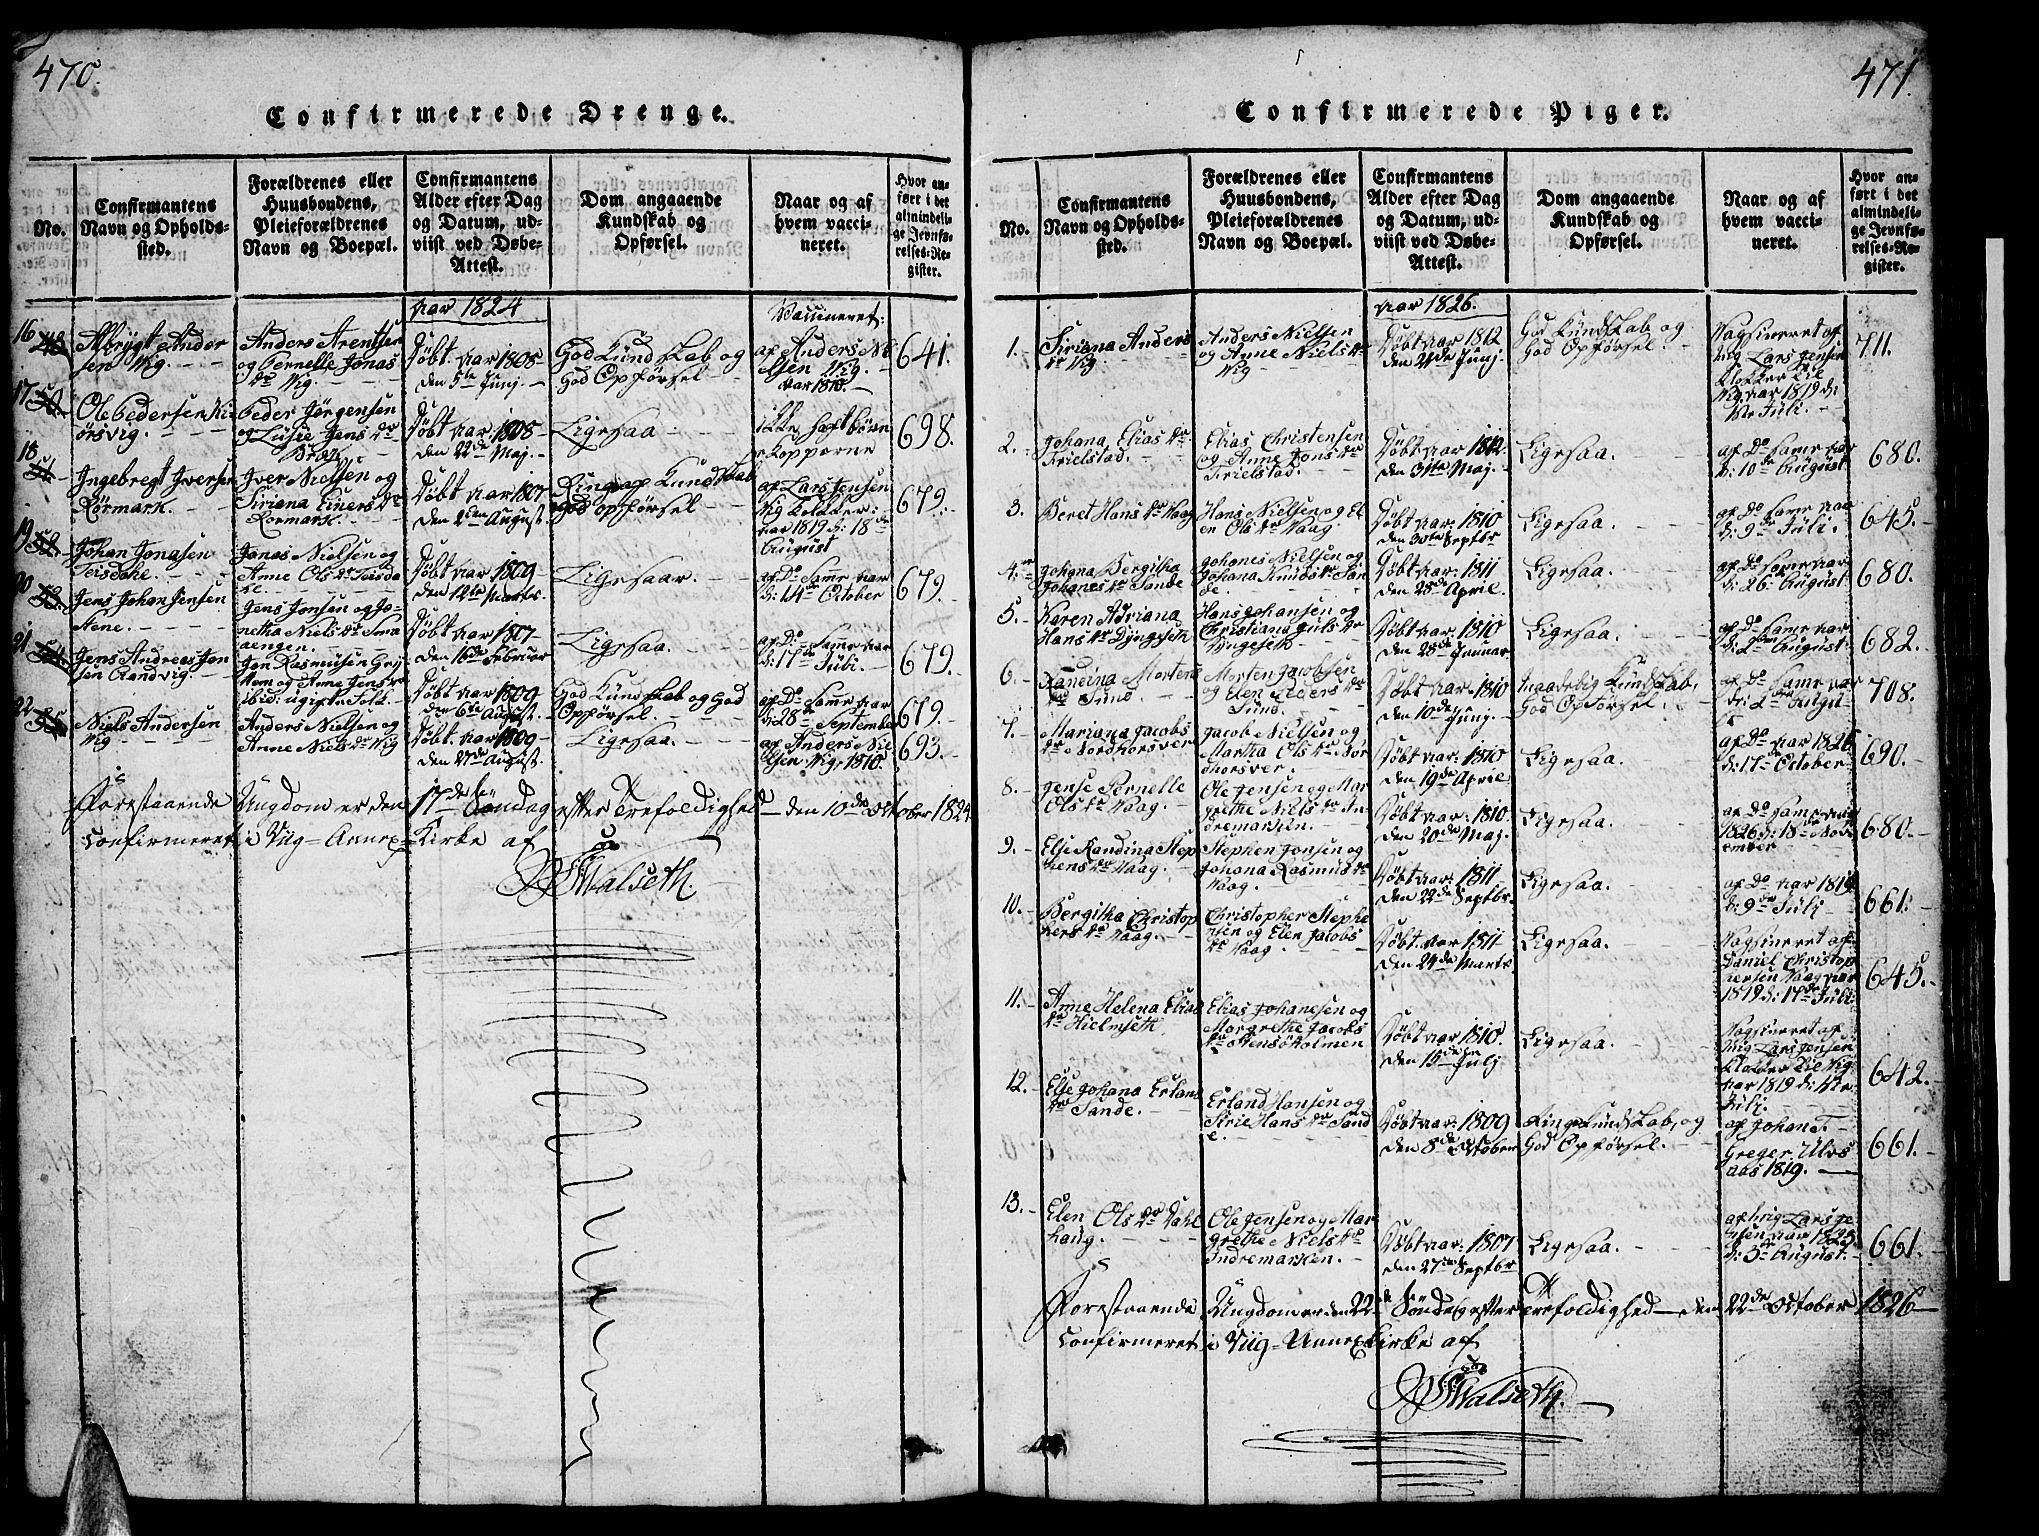 470.
Confirmerede Drenge.
No.
Confirmantens
Navn og Opholds-
sted.
Forældrenes eller
Huusbondens,
Pleieforældrenes
Navn og Boepæl.
Confirmantens
Alder efter Dag
og Datum, ud-
viist ved Døbe-
Attest.
Dom angaaende
Kundskab og
Opførsel.
Naar og af
hvem vacci-
neret.
Hvor an-
ført i det
almindeli-
ge Jevnfø-
relses-Re-
gister.
Aar 1824
Vaccineret:
16
Albrygt Ander
sen Wig.
Anders Arentsen
og Pernelle Jonas
dr Wig.
Døbt. Aar 1808
den 5te Junj.
God Kundskab og
God Opførsel.
af Anders Ni
elsen Wig.
Aar 1810.
641.
17
Ole Pedersen Ki
örsvig.
Peder Jørgensen
og Lusie Jens dr
Døbt Aar 1808
den 22de Maj.
Ligesaa
ikke haft børne
kopperne
698.
18
Ingebregt Iversen
Rörmark.
Iver Nielsen og
Siriana Einers dr
Rormark.
Døbt Aar 1807
den 2den August.
Ringe af Kundskab
God opførsel
af Lars Jensen
Wig Klokker:
Aar 1819 d: 18de
August
679.
19
Johan Jonasen
Teisdahl.
Jonas Nielsen og
Anne Ols dr Teisda
hl.
Døbt Aar 1809
den 12te Martz.
Ligesaa.
af Do Samr Aar
d: 14de October
679.
20
Jens Johan Jensen
Stene.
Jens Jonsen og Jo-
netha Niels dr Sma
aengen.
Døbt Aar 1807
den 16de Februar
Ligesaa.
af Do Samr Aar
d: 17de Juli.
679.
21
Jens Andreas Jon
sen Randvig.
Jon Rasmusen Grij
tten og Anne Jens dr
ibid: ugifte Folk.
Døbt Aar 1809
den 6te August.
God Kundskab og God
Opførsel.
af Do Samr Aar
d: 28de September
679.
22
Niels Andersen
Wig
Anders Nielsen og
Anne Niels dr Wig
Døbt. Aar 1809
den 27de August.
Ligesaa.
af Anders Nie
lsen Wig, 1810.
693.
Forestaaende Ungdom er den 17de Söndag efter Trefoldighed den 10de October 1824
Confirmeret i Viig-Annex-Kirke af
Walseth.
471.
Confirmerede Piger.
No.
Confirmantens
Navn og Opholds-
sted.
Forældrenes eller
Huusbondens,
Pleieforældrenes
Navn og Boepæl.
Confirmantens
Alder efter Dag
og Datum, ud-
viist ved Døbe-
Attest.
Dom angaaende
Kundskab og
Opførsel.
Naar og af
hvem vacci-
neret.
Hvor an-
ført i det
almindeli-
ge Jevnfø-
relses-Re-
gister.
Aar 1826.
1.
Siriana Anders
dr Wig.
Anders Nielsen
og Anne Niels dr
Wig
Døbt Aar 1812
den 21de Junj.
God Kundskab og
God Opførsel.
Vagsineret af
mig Lars Jensen
Klokker til
Wig Aar 1819 d:
Juli.
711.
2.
Johana Elias dr
Trielstad.
Elias Christensen
og Anne Jons dr
Trielstad.
Døbt Aar 1812
den 31te Maj.
Ligesaa.
af Do Samr Aar
d: 10de August
680.
3.
Beret Hans dr Vaag
Hans Nielsen og El
en Ols dr Vaag.
Døbt Aar: 1810
den 30te Septbr
Ligesaa.
af Do Samr Aar
d: 9de Juli.
645.
4.
Johana Bergitha
Johanes dr Sande
Johanes Nielsen og
Johana Knuds dr San
de.
Døbt Aar: 1811
den 28de April.
Ligesaa.
af Do Samr Aar
d: 26de August
680.
5.
Karen Adriana
Hans dr Dyngseth
Hans Johansen og
Christiana Juls dr
Dyngeseth
Døbt Aar: 1810
den 28de Januar.
Ligesaa.
af Do Samr Aar
d: 2den August
682.
6.
Randina Mortens
dr Sund
Morten Jacobsen
og Elen Peders dr
Sund.
Døbt Aar. 1810
den 10de Junj.
Maadelig Kundskab,
God Opførsel.
af Do Samr Aar
d: 2de Augu
st
708.
7.
Mariana Jacobs
dr Nordhorsver
Jacob Nielsen og
Martha Ols dr Nor
dhorsver.
Døbt Aar. 1810
den 19de April
Ligesaa.
af Do Aar 1826
d: 17de October
690.
8.
Jense Pernelle
Ols dr Vaag.
Ole Jensen og Mar
grethe Niels dr In
dremarken.
Døbt Aar: 1810.
den 20de Maj.
Ligesaa.
af Do Samr Aar
1826 d: 18de Nov
ember
680.
9.
Else Randina Step
hens dr Vaag.
Stephen Jonsen og
Johana Rasmus dr
Vaag.
Døbt Aar: 1811
den 22de Septbr.
Ligesaa.
af Do Aar 1819
d: 9de Juli
661.
10.
Bergitha Christop
hers dr Vaag.
Christopher Stephe
nsen og Elen Jacobs
dr Vaag.
Døbt. Aar 1811
den 24de Marts.
Ligesaa.
Vagsineret af
Daniel Christop
hersen Vaag Aar
1819 d: 17de Juli.
645.
11.
Anne Helena Elias
dr Hielmseth.
Elias Johanesen og
Margrethe Jacobs
dr Stensöholmen
Døbt Aar 1810.
den 15de Julj
Ligesaa.
Vagsineret af
mig Lars Jensen
Klokker til Wig
Aar 1819 d:
Juli.
642.
12.
Else Johana Erland
dr Sande.
Erland Hansen og
Sirie Hans dr Sand
e.
Døbt Aar: 1809
den 8de October
Ring Kundskab, og
God Opførsel.
af Johan T.
Greger Ulvs
aas 1819.
661.
13.
Elen Ols dr Dahl
haug.
Ole Jensen og Mar
grethe Niels dr
Indremarken.
Døbt Aar: 1807
den 27de Septbr
Ligesaa.
af mig Lars Je
nsen Aar 1825
d: 5te August.
661.
Forestaaende Ungdom er den 22de Söndag efter Trefoldighed den 22de October 1826
Confirmeret i Viig-Annex Kirke af
Walseth.